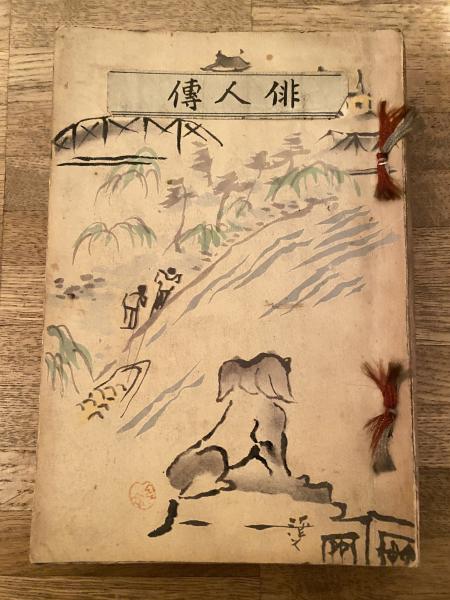 俳人傳